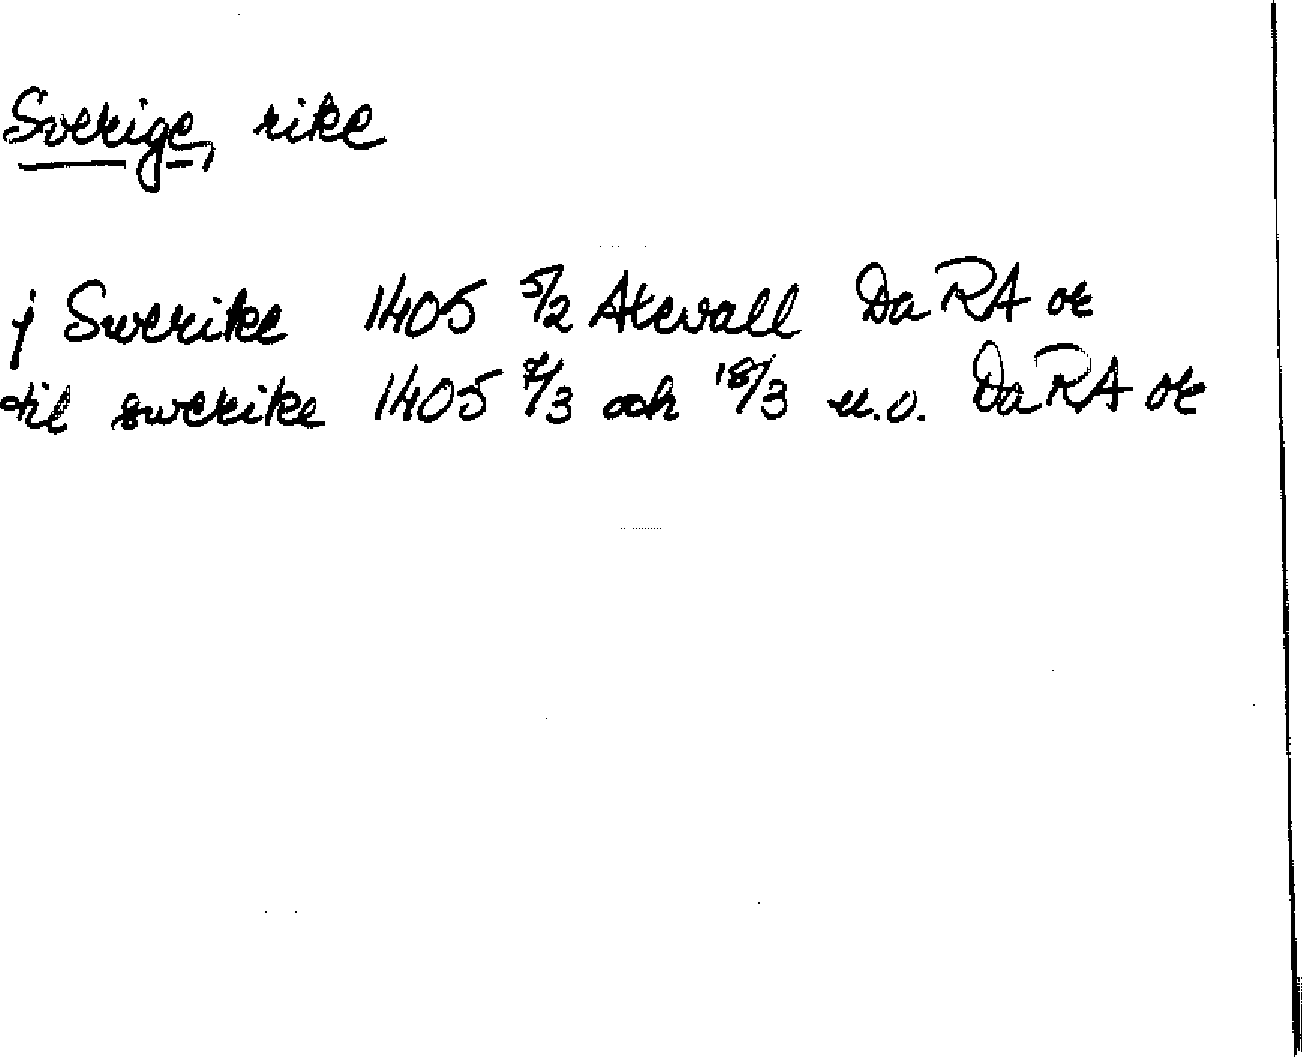 Sverige, rike
j Swerike 1405 5/2 Atevall DaRA or
til swerike 1405 7/3 och 18/3 u.o. DaRA or